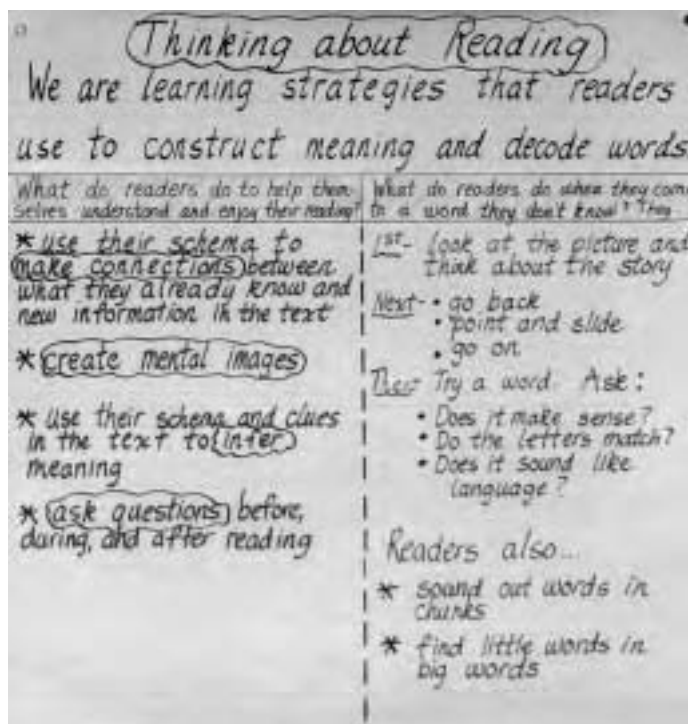 Thinking about Reading
We are learning strategies that readers
use to construct meaning and decode words
What do readers do to help them-
selves understand and enjoy their reading?
* use their schema to
make connections between
what they already know and
new information in the text
* create mental images
* use their schema and clues
in the text to infer
meaning
* ask questions before,
during, and after reading
What do readers do when they come
to a word they don't know? They
1st- look at the picture and
think about the story
Next- • go back
• point and slide
• go on
Then- Try a word. Ask:
• Does it make sense?
• Do the letters match?
• Does it sound like
language?
Readers also...
* sound out words in
chunks
* find little words in
big words